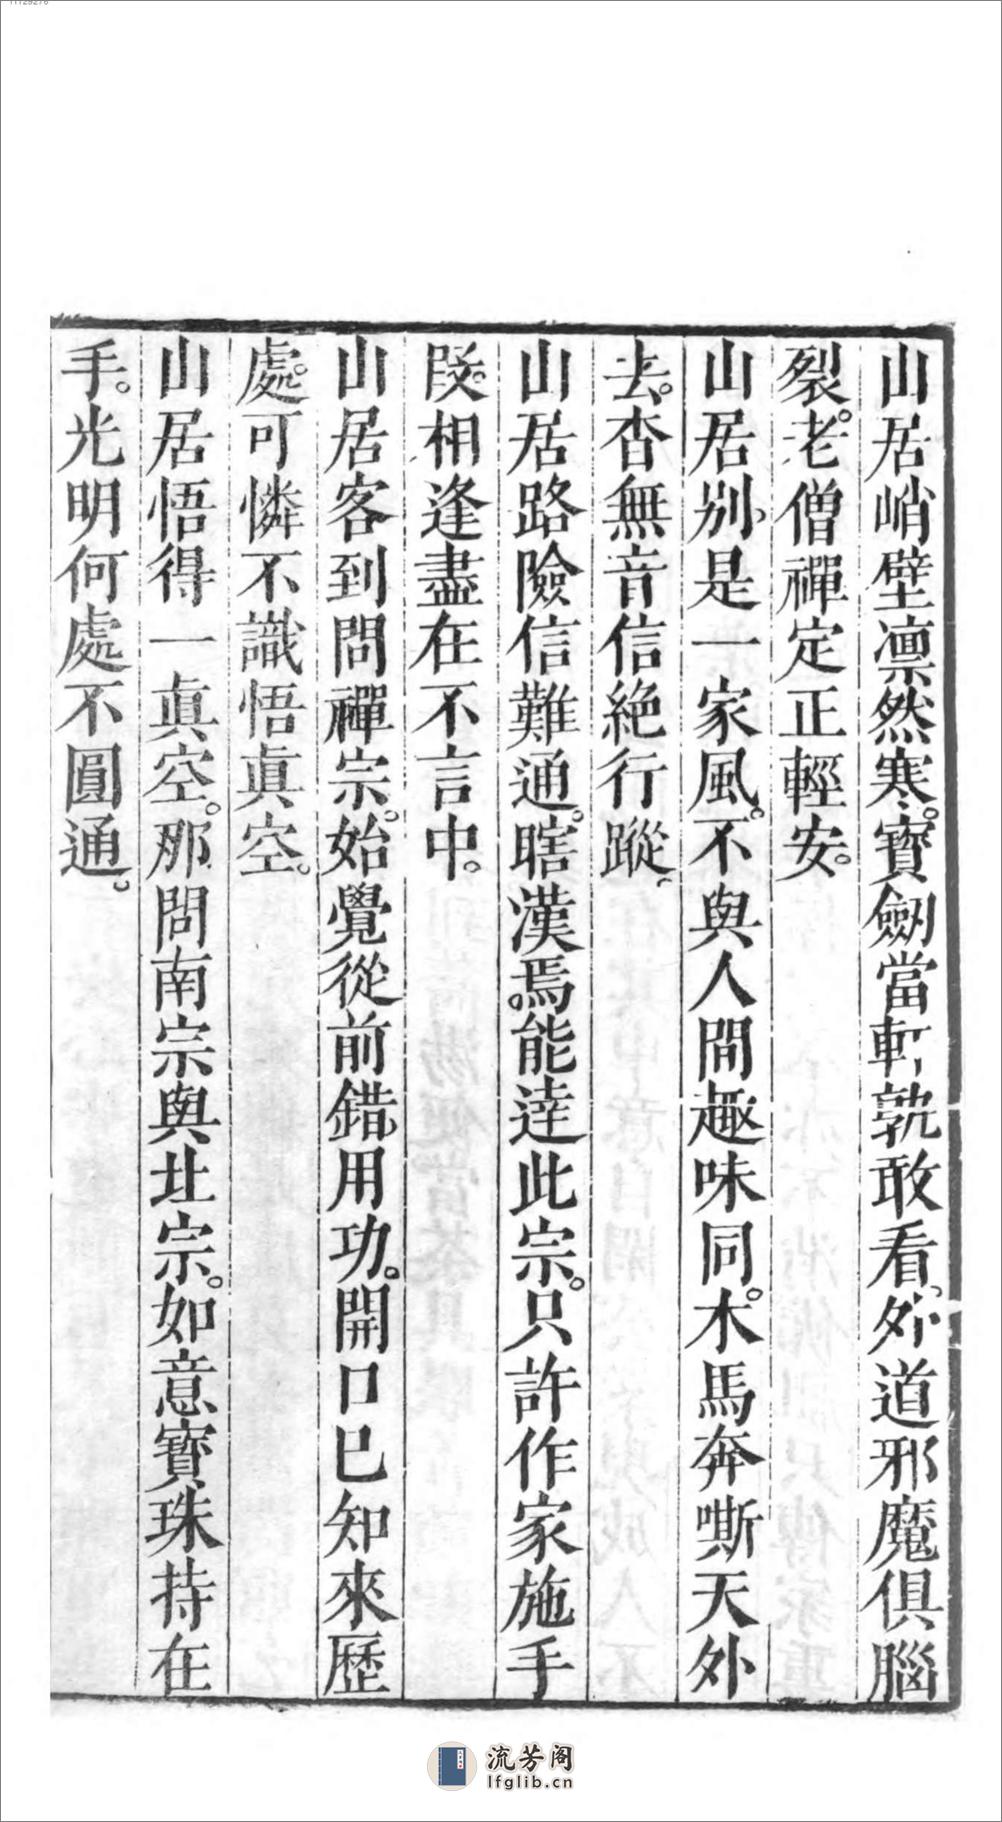 11129276
山居峭壁凛然寒。寶劒當軒孰敢看。外道邪魔俱腦
裂。老僧禪定正輕安。
山居別是一家風。不與人間趣味同。木馬奔嘶天外
去。杳無音信絶行蹤。
山居路險信難通。瞎漢焉能達此宗。只許作家施手
段。相逢盡在不言中。
山居客到問禪宗。始覺從前錯用功。開口已知來歷
處。可憐不識悟眞空。
山居悟得一眞空。那問南宗與北宗。如意寶珠持在
手。光明何處不圓通。
流芳阁
lfglib.cn